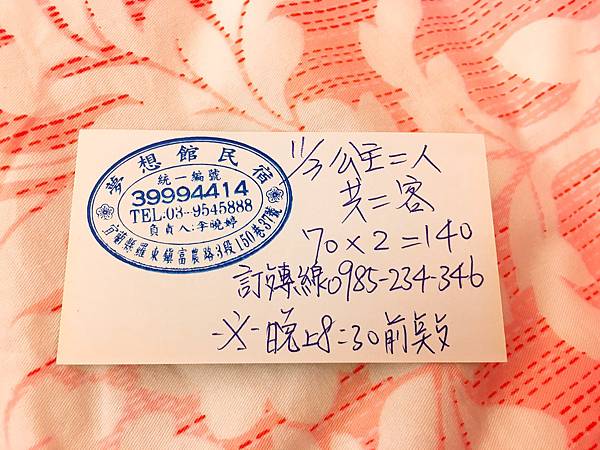 夢想館民宿
統一編號
39994414
TEL:03-9545888
負責人:李曉婷
宜蘭縣羅東鎮富農路3段150巷37號
11/3公主二人
共二客
70×2=140
訂專線0985-234-346
晚上8:30前